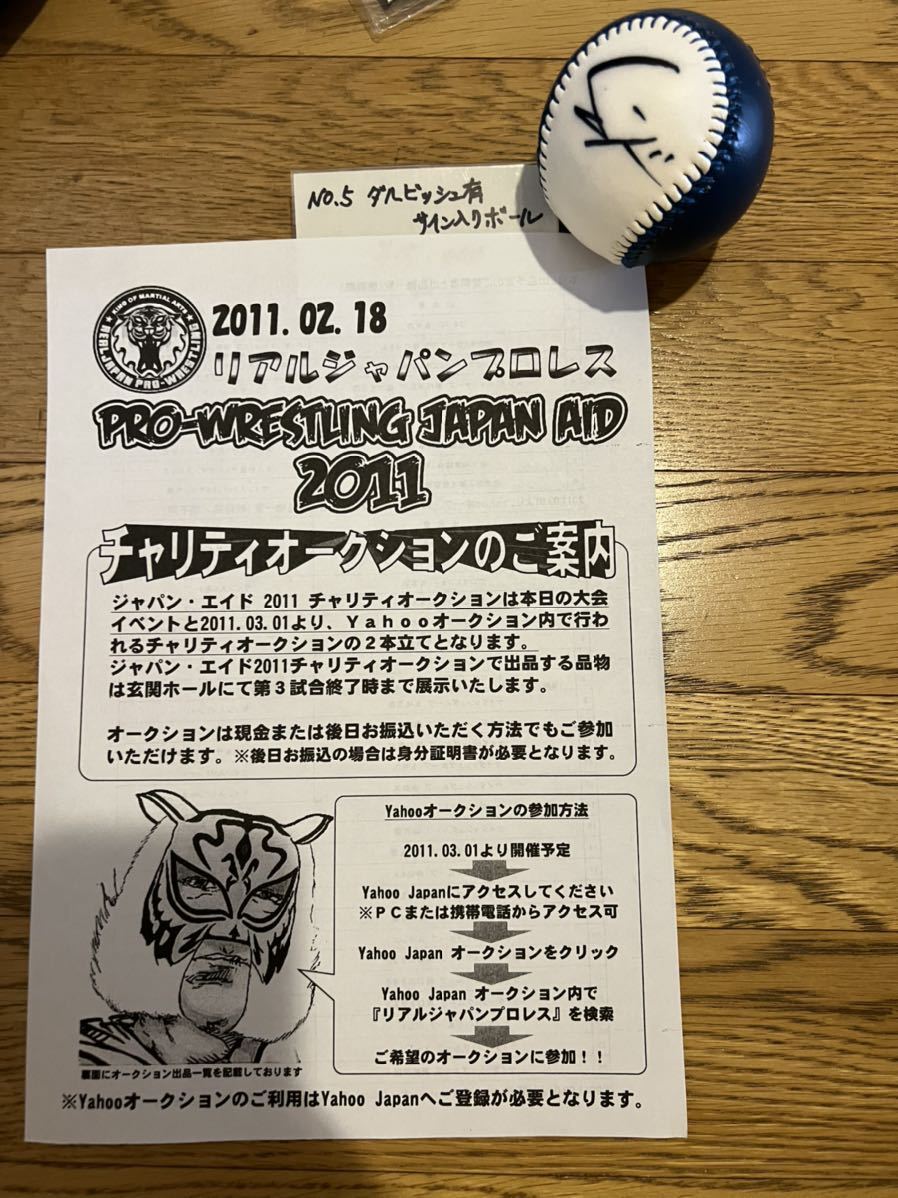 NO.5 ダルビッシュ有
サイン入りボール
KING OF MARTIAL ARTS
REAL JAPAN PRO-WRESTLING
2011.02.18
リアルジャパンプロレス
PRO-WRESTLING JAPAN AID
2011
チャリティオークションのご案内
ジャパン・エイド 2011 チャリティオークションは本日の大会
イベントと2011.03.01より、Yahooオークション内で行わ
れるチャリティオークションの2本立てとなります。
ジャパン・エイド2011チャリティオークションで出品する品物
は玄関ホールにて第3試合終了時まで展示いたします。
オークションは現金または後日お振込いただく方法でもご参加
いただけます。※後日お振込の場合は身分証明書が必要となります。
Yahooオークションの参加方法
2011.03.01より開催予定
Yahoo Japanにアクセスしてください
※PCまたは携帯電話からアクセス可
Yahoo Japan オークションをクリック
Yahoo Japan オークション内で
『リアルジャパンプロレス』を検索
ご希望のオークションに参加!!
裏面にオークション出品一覧を記載しております
※Yahooオークションのご利用はYahoo Japanへご登録が必要となります。